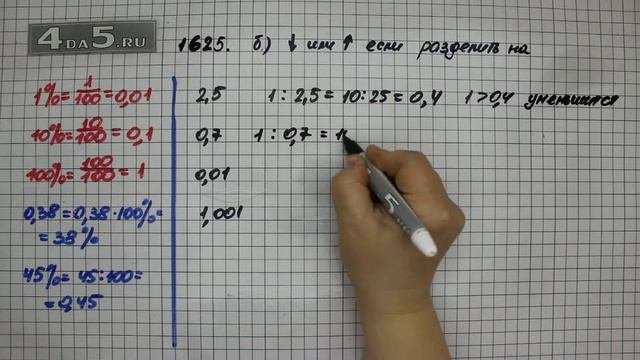 4DA5.RU
1625. б) ↓ или ↑ если разделить на
1% = 1/100 = 0,01
10% = 10/100 = 0,1
100% = 100/100 = 1
0,38 = 0,38 · 100% =
= 38%
45% = 45 : 100 =
= 0,45
2,5 1 : 2,5 = 10 : 25 = 0,4 1 > 0,4 уменьшится
0,7 1 : 0,7 = 1
0,01
1,001